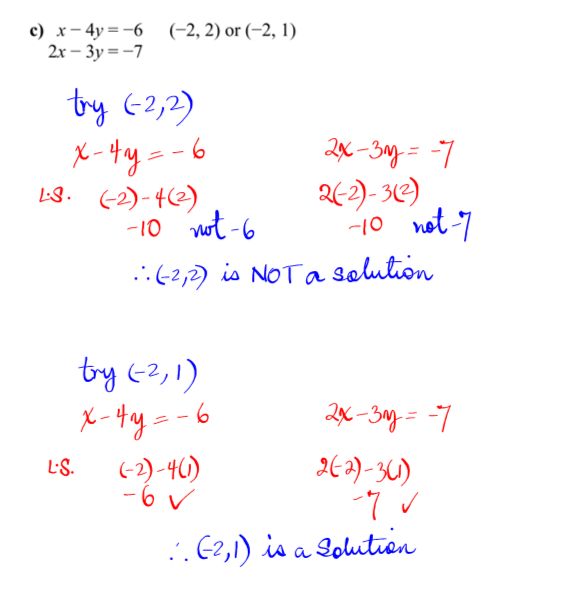 c) x − 4y = −6 (−2, 2) or (−2, 1)
2x − 3y = −7
try (-2,2)
x - 4y = - 6 2x - 3y = -7
L.S. (-2) - 4(2) 2(-2) - 3(2)
-10 not -6 -10 not -7
∴ (-2,2) is NOT a solution
try (-2, 1)
x - 4y = - 6 2x - 3y = -7
L.S. (-2) - 4(1) 2(-2) - 3(1)
-6 ✓ -7 ✓
∴ (-2,1) is a solution